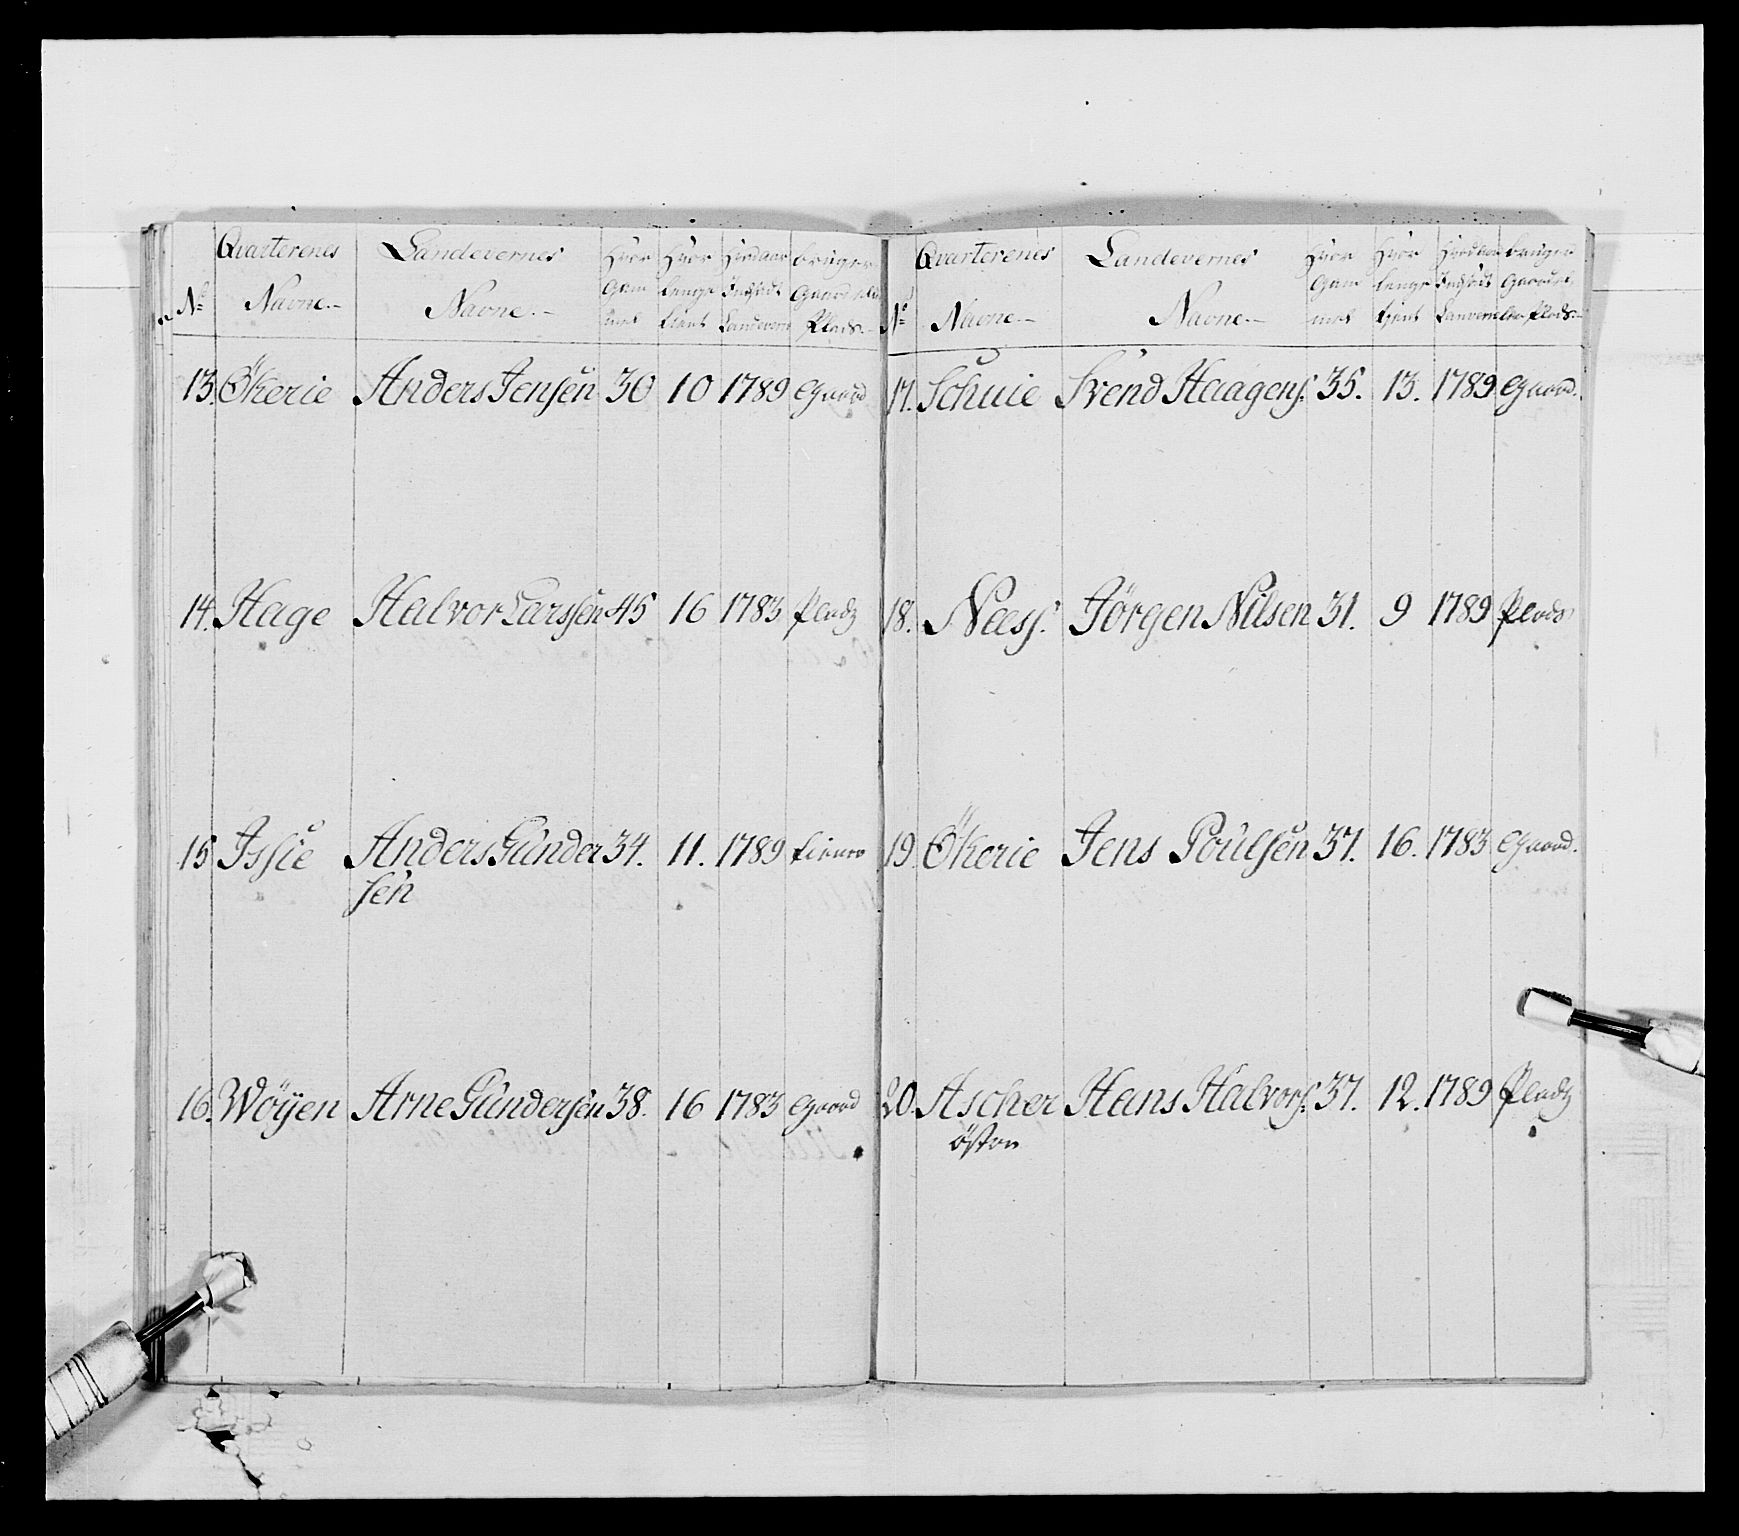 No Qvarterenes Navne.- Landevernes Navne.- Hvor Gam mel Hvor lenge tient Hvad aar Indsadt Landevern bruger Gaard eller Plads.-
13. Ökerie Anders Jensen 30 10 1789 Gaard
14. Hage Halvor Larssen 45 16 1783 Pladz
15 Issie Anders Gunder 34. 11. 1789 tiener
sen
16. Wöyen Arne Gundersen 38. 16 1783 Gaard
No Qvarterenes Navne.- Landevernes Navne.- Hvor Gam mel Hvor lenge tjent Hvad aar Indsadt bruger Gaard eller Plads.-
17. Schuie Svend Haagens: 35. 13. 1789 Gaard.
18. Neess. Jörgen Nilsen 31. 9 1789 Plads
19. Ökerie Jens Poulsen 37. 16. 1783 Gaard.
20. Ascher Hans Halvors: 37. 12. 1789 Pladz
östre